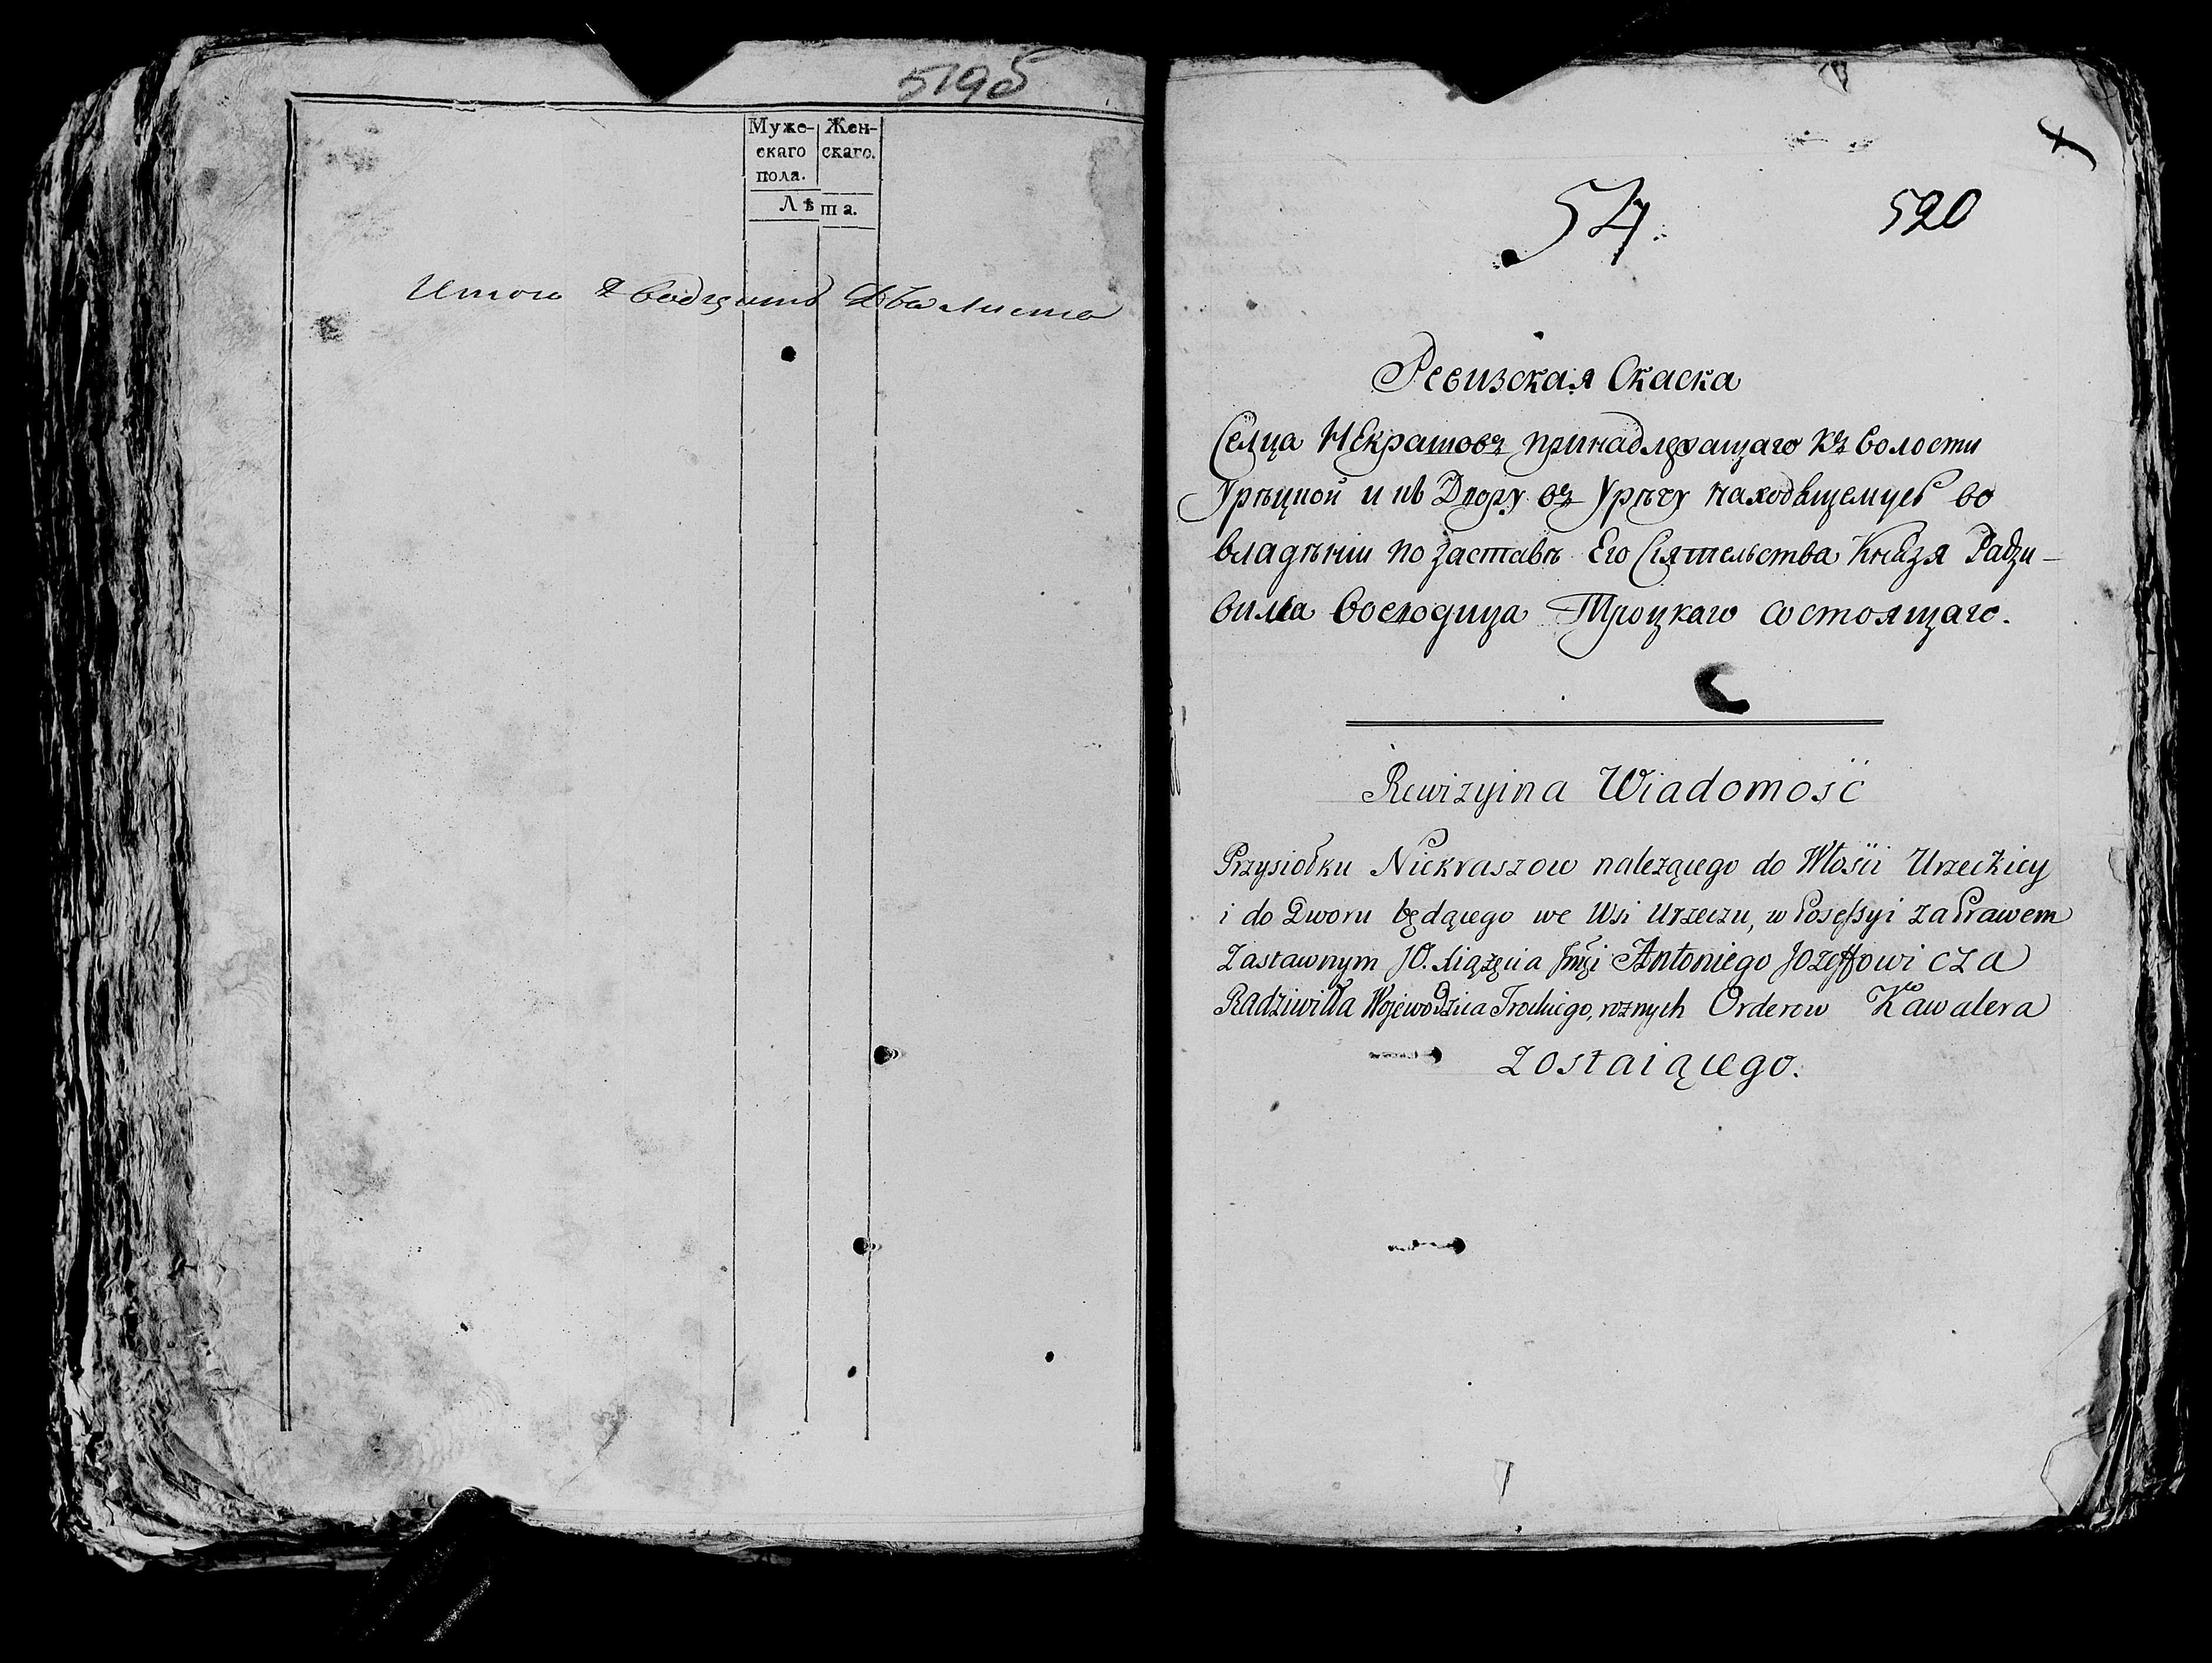 519об
Муже- Жен-
скаго скаго.
пола.
Лѣта.
Итого Двадцать Два листа
54. 520
Ревизская Скаска
Селца Некрашовъ принадлежащаго къ волости
Урѣцкой и къ Двору въ Урѣчу находящемуся во
владѣніи по заставѣ Его Сіятельства Князя Радзи-
вила Воеводица Троцкаго состоящаго.
Rewizyina Wiadomość
Przysiołku Niekraszow nalezącego do Włości Urzeckiey
i do Dworu będącego we Wsi Urzeczu, w Possessyi za Prawem
Zastawnym JO. Xiążęcia Jmći Antoniego Jozeffowicza
Radziwiłła Wojewodzica Trockiego, roznych Orderow Kawalera
zostaiącego.